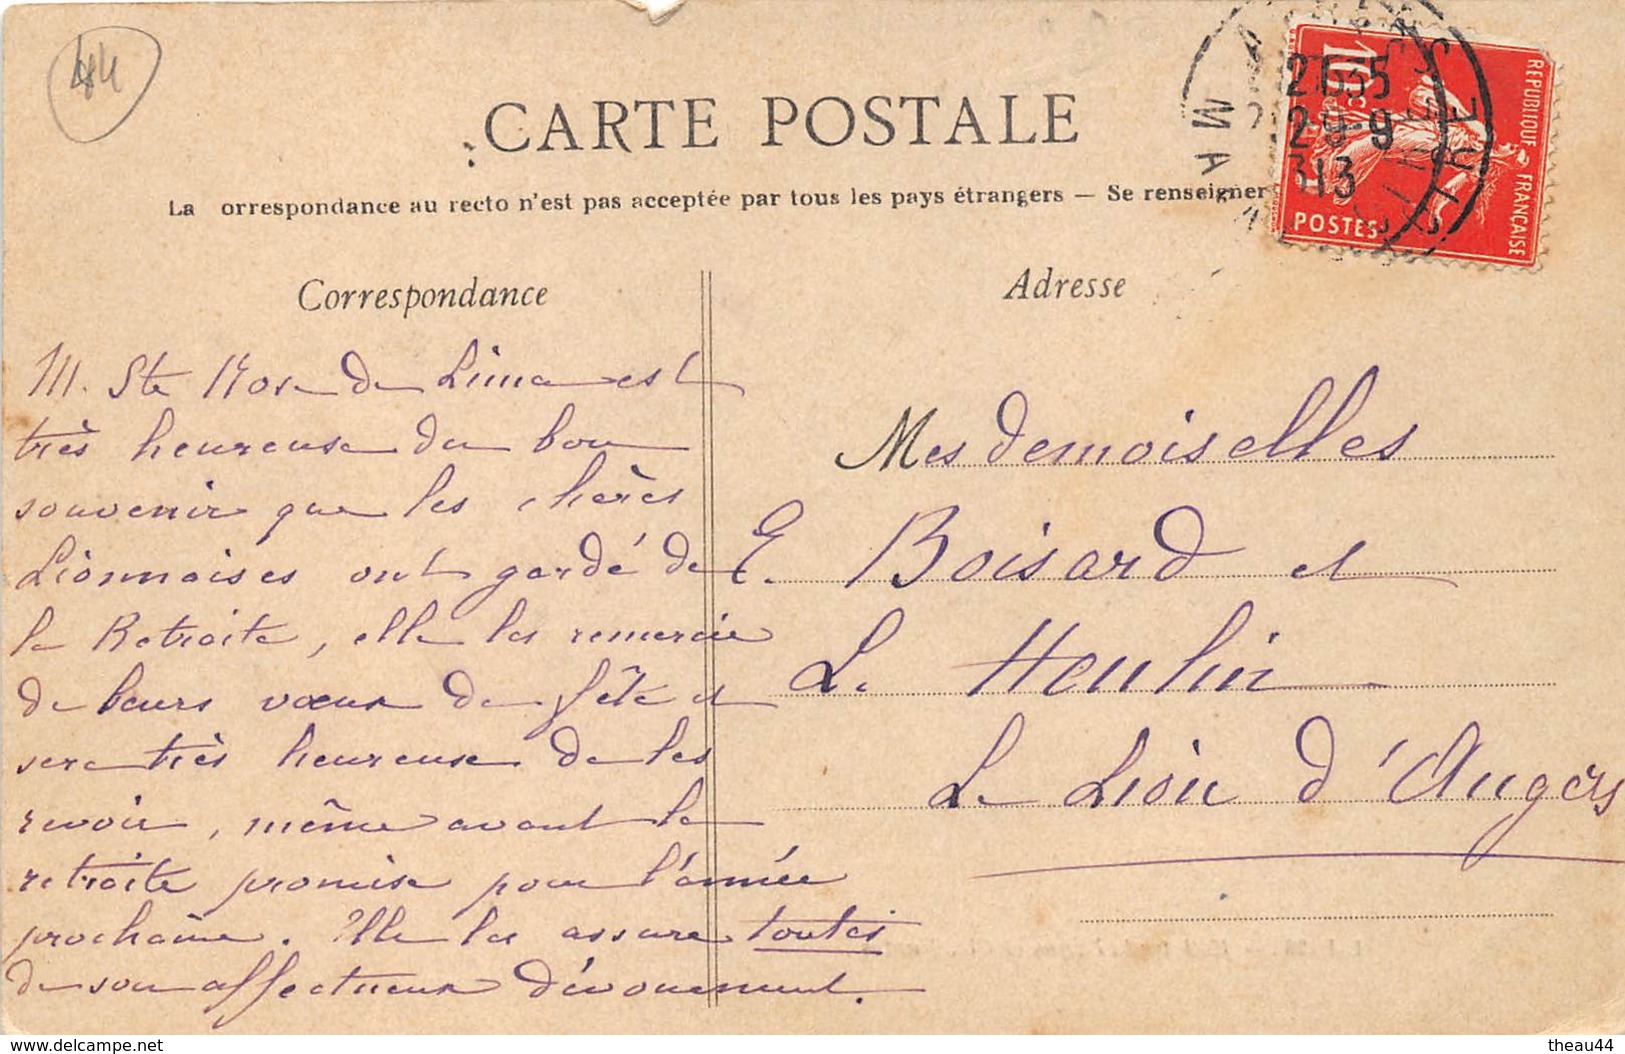 44
CARTE POSTALE
La orrespondance au recto n'est pas acceptée par tous les pays étrangers — Se renseigner
REPUBLIQUE FRANÇAISE
10c
POSTES
21 35
29-9
13
Correspondance
M. Ste Rose de Lima est
très heureuse du bon
souvenir que les chères
Lionnaises ont gardé de
la Retraite, elle les remercie
de leurs vœux de fête et
sera très heureuse de les
revoir, même avant la
retraite promise pour l'année
prochaine. Elle les assure toutes
de son affectueux dévouement.
Adresse
Mesdemoiselles
E. Boisard et
L. Heulin
Le Lion d'Angers
https://www.delcampe.net
theau44